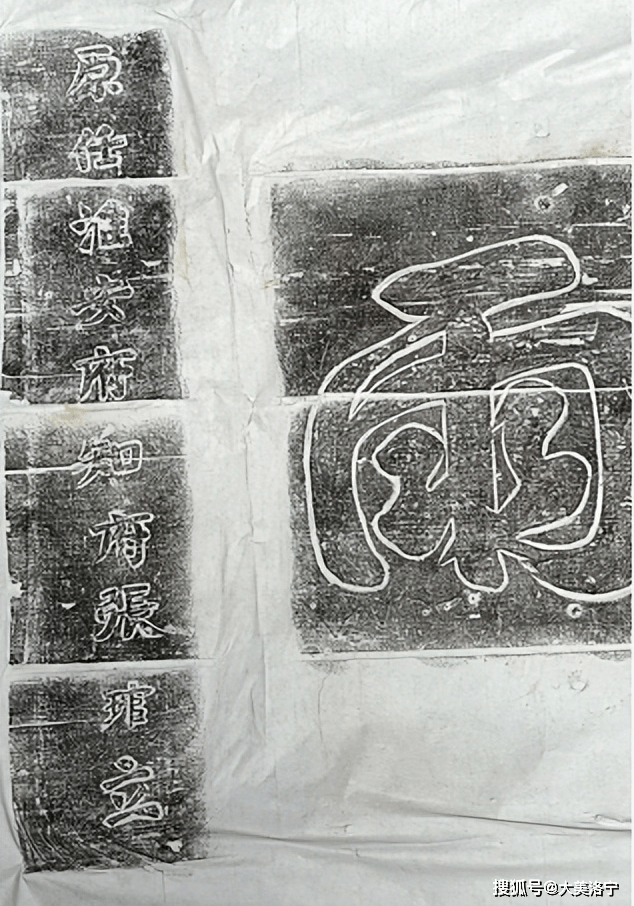 雨
原任淮安府知府張琯立
搜狐号@大美洛宁